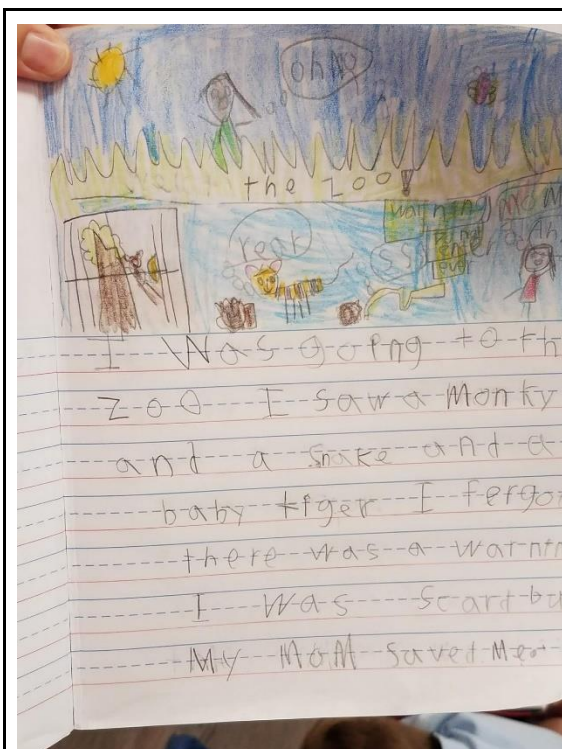 oh no
the zoo!
warning MOM
roar
SS
I was going to th
zoo I saw a Monky
and a snake and a
baby tiger I fergo
there was a warnin
I was scard bu
My MoM saved Me